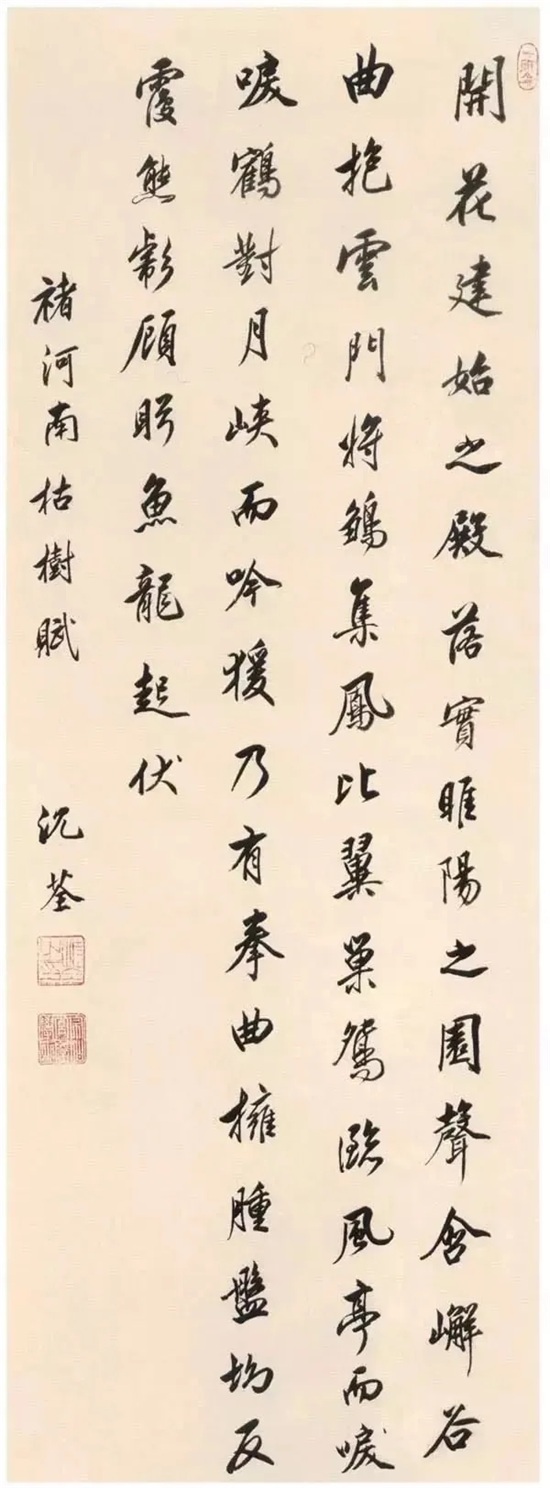 開花建始之殿落實睢陽之園聲含嶰谷
曲抱雲門將鶵集鳳比翼巢鴛臨風亭而唳
唳鶴對月峽而吟猨乃有拳曲擁腫盤坳反
覆熊彪顧盼魚龍起伏
褚河南枯樹賦 沈荃